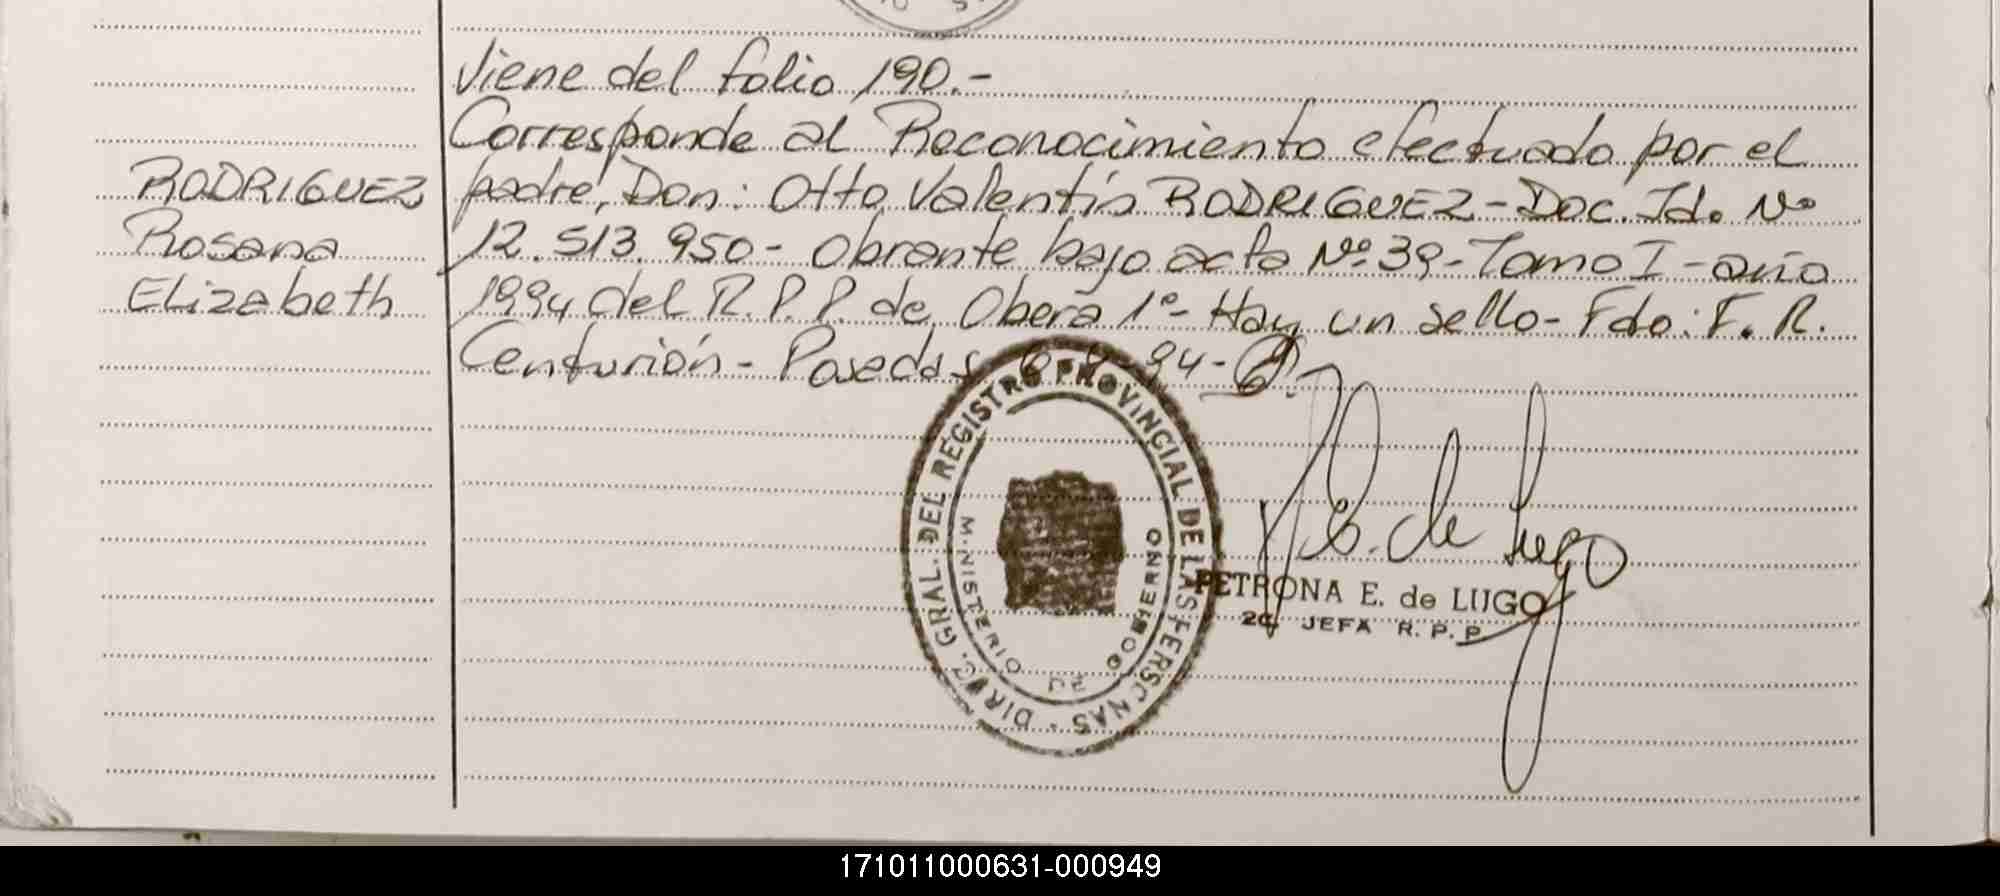 Viene del folio 190.-
Corresponde al Reconocimiento efectuado por el
RODRIGUEZ padre, Don: Otto Valentín RODRIGUEZ-Doc. Id. Nº
Rosana 12.513.950- Obrante bajo acta Nº 39-Tomo I-año
Elizabeth 1994 del R.P.P. de Oberá 1º- Hay un sello- Fdo: F. R.
Centurión- Posadas 94-
DIREC. GRAL. DEL REGISTRO PROVINCIAL DE LAS PERSONAS
MINISTERIO DE GOBIERNO
P. E. de Lugo
PETRONA E. de LUGO
JEFA R. P. P.
171011000631-000949